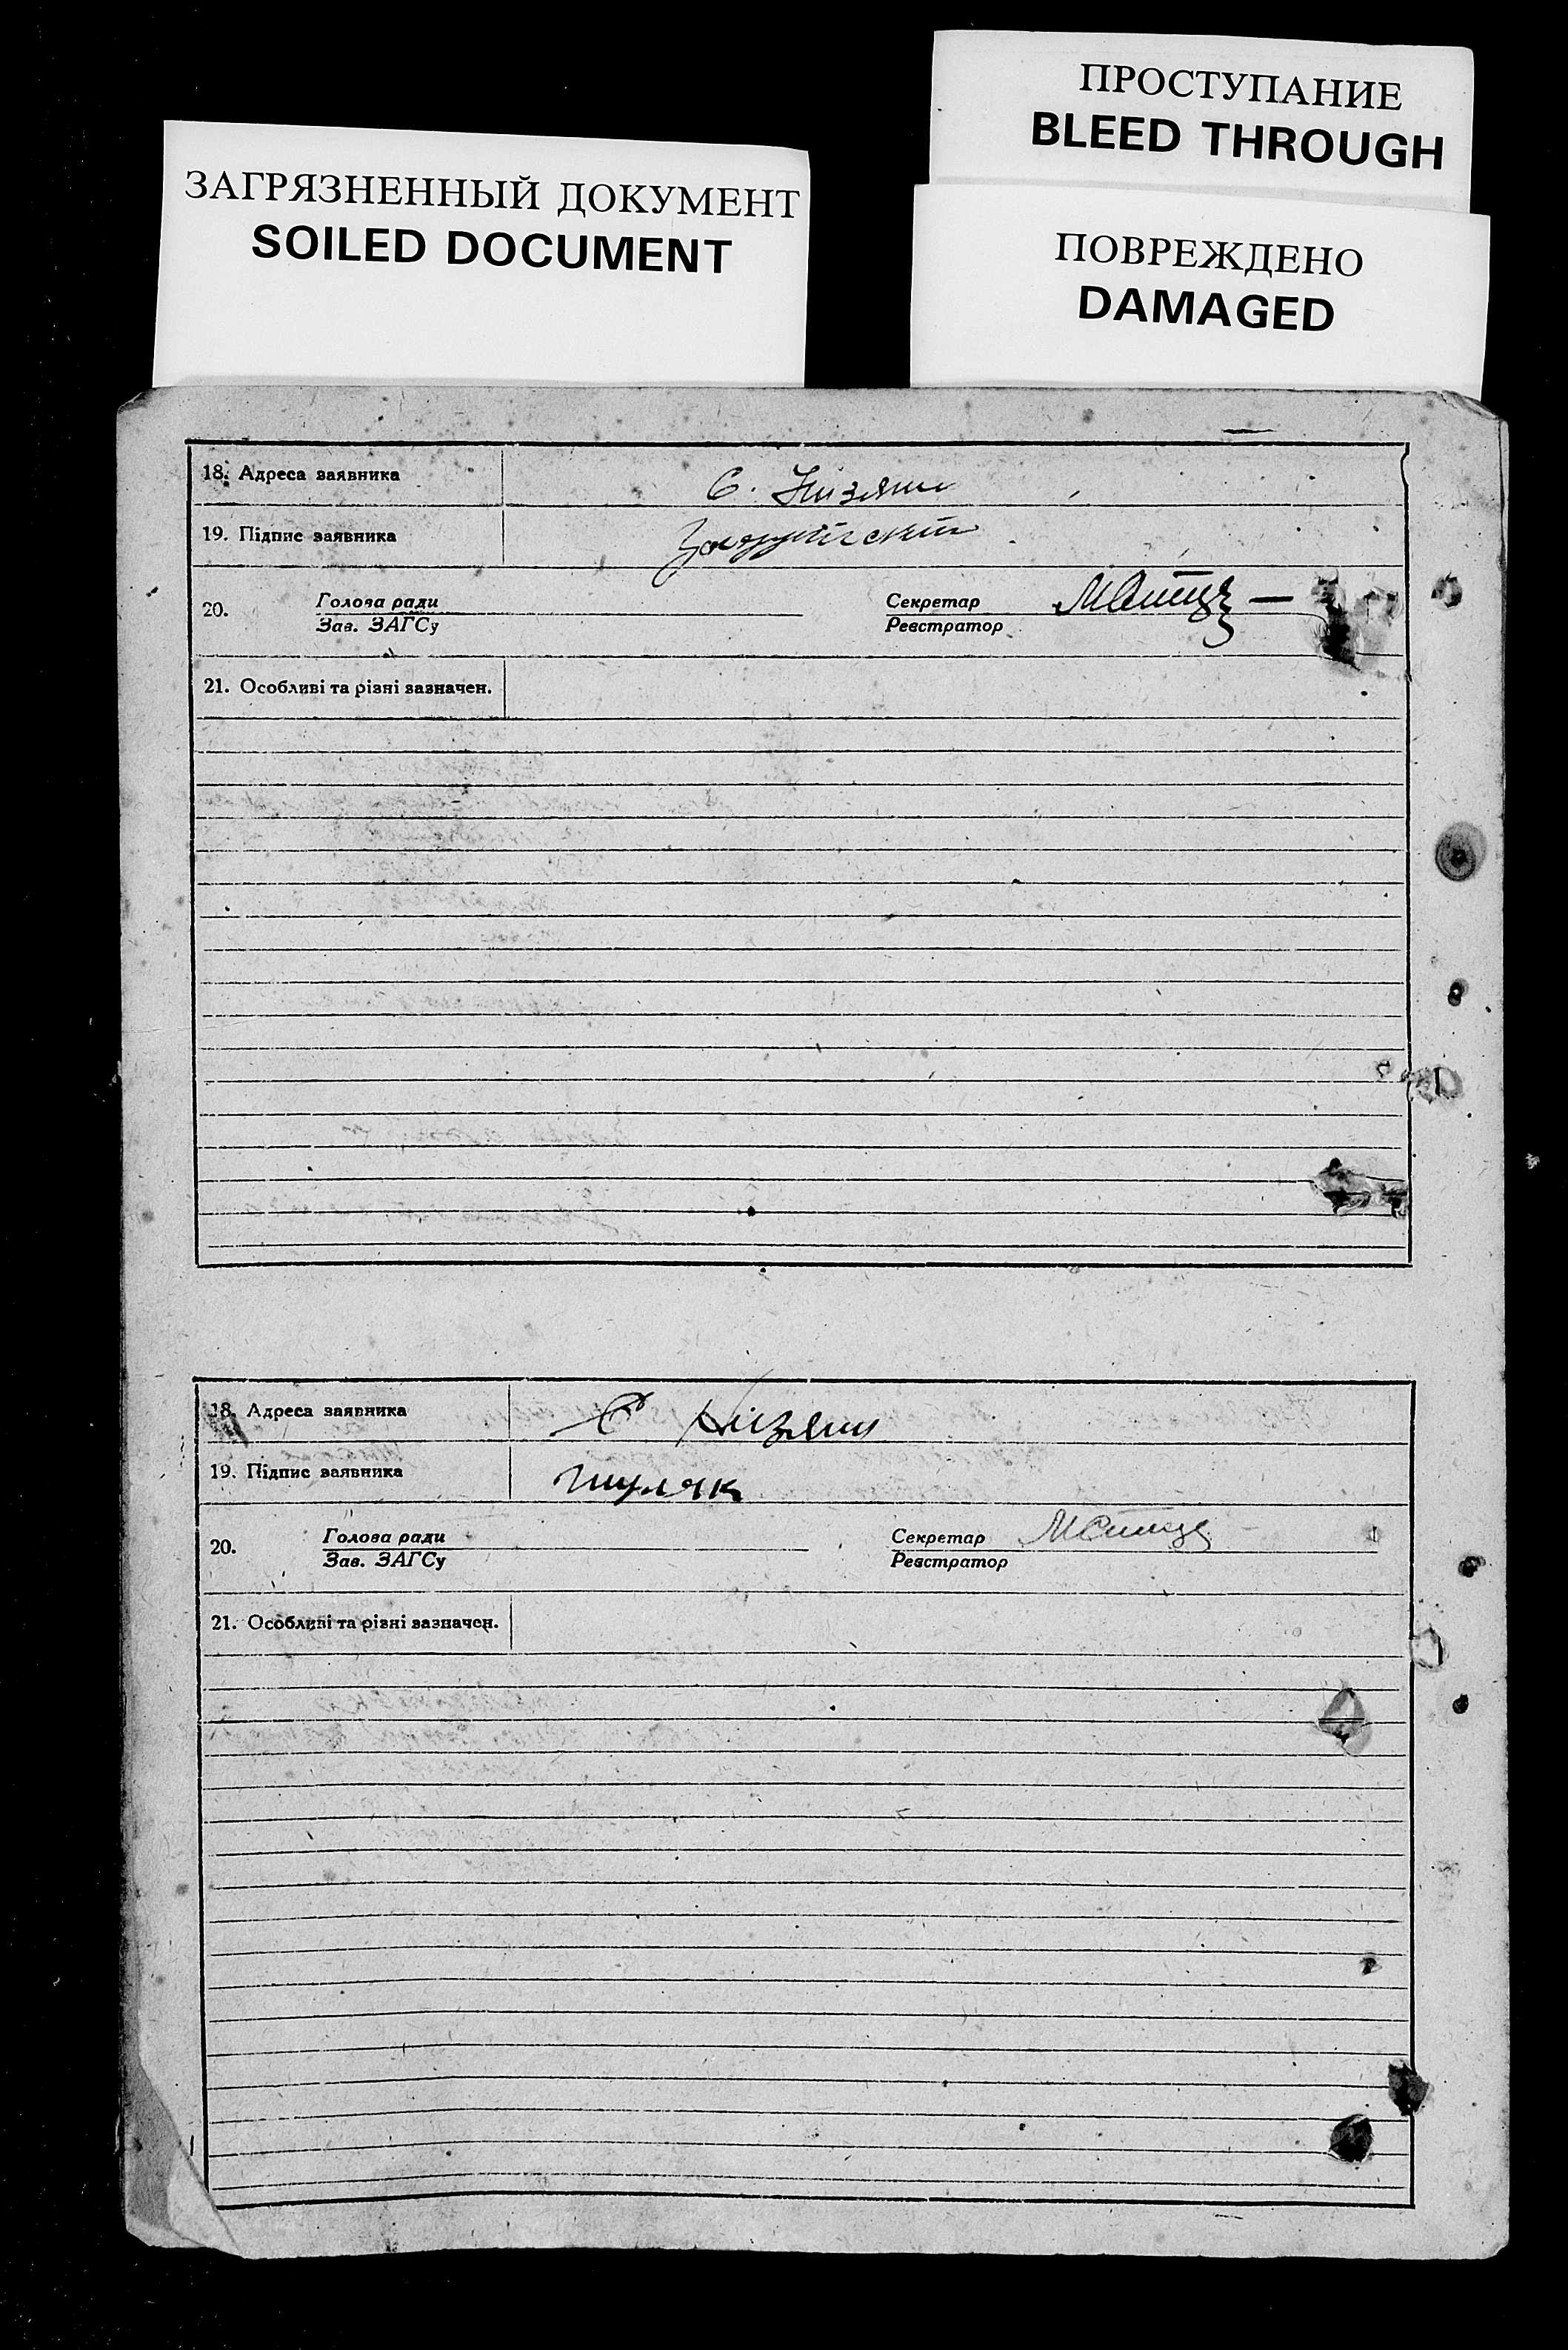 ПРОСТУПАНИЕ
BLEED THROUGH
ЗАГРЯЗНЕННЫЙ ДОКУМЕНТ
SOILED DOCUMENT
ПОВРЕЖДЕНО
DAMAGED
18. Адреса заявника С. Низяни
19. Підпис заявника
20. Голова ради Секретар
Зав. ЗАГСу Реєстратор
21. Особливі та різні зазначен.
18. Адреса заявника С Низяни
19. Підпис заявника Шуляк
20. Голова ради Секретар
Зав. ЗАГСу Реєстратор
21. Особливі та різні зазначен.